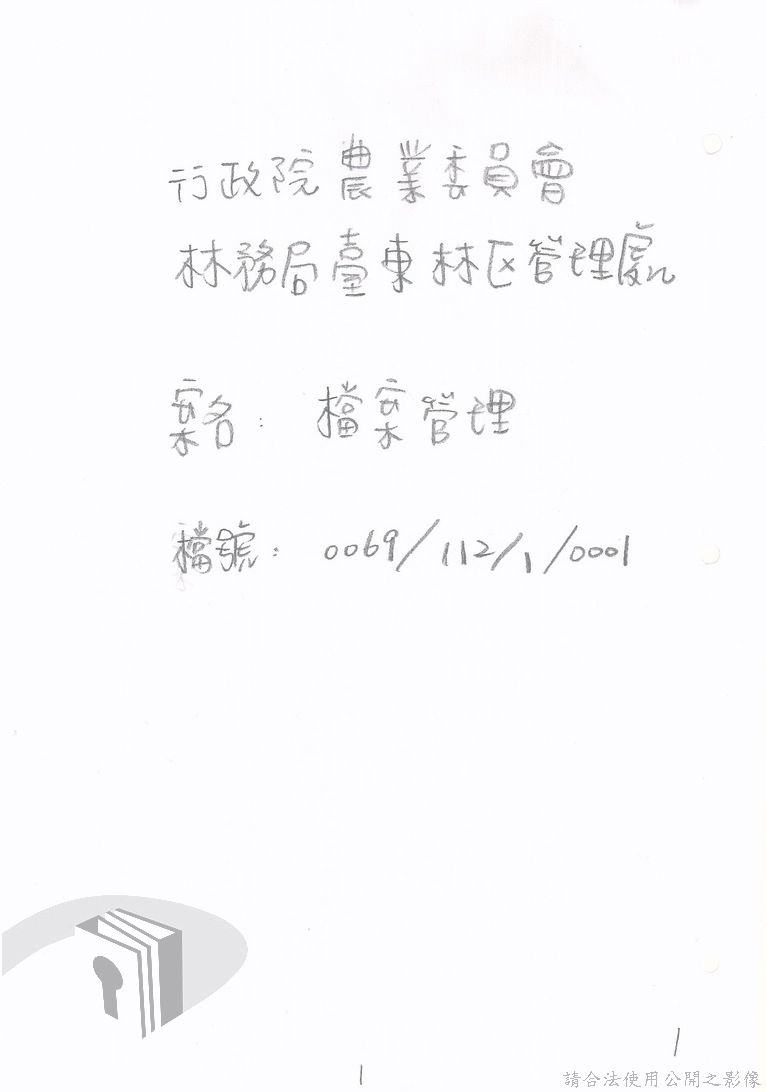 行政院農業委員會
林務局臺東林区管理處
案名：檔案管理
檔號：0069/112/1/0001
1
1
請合法使用公開之影像